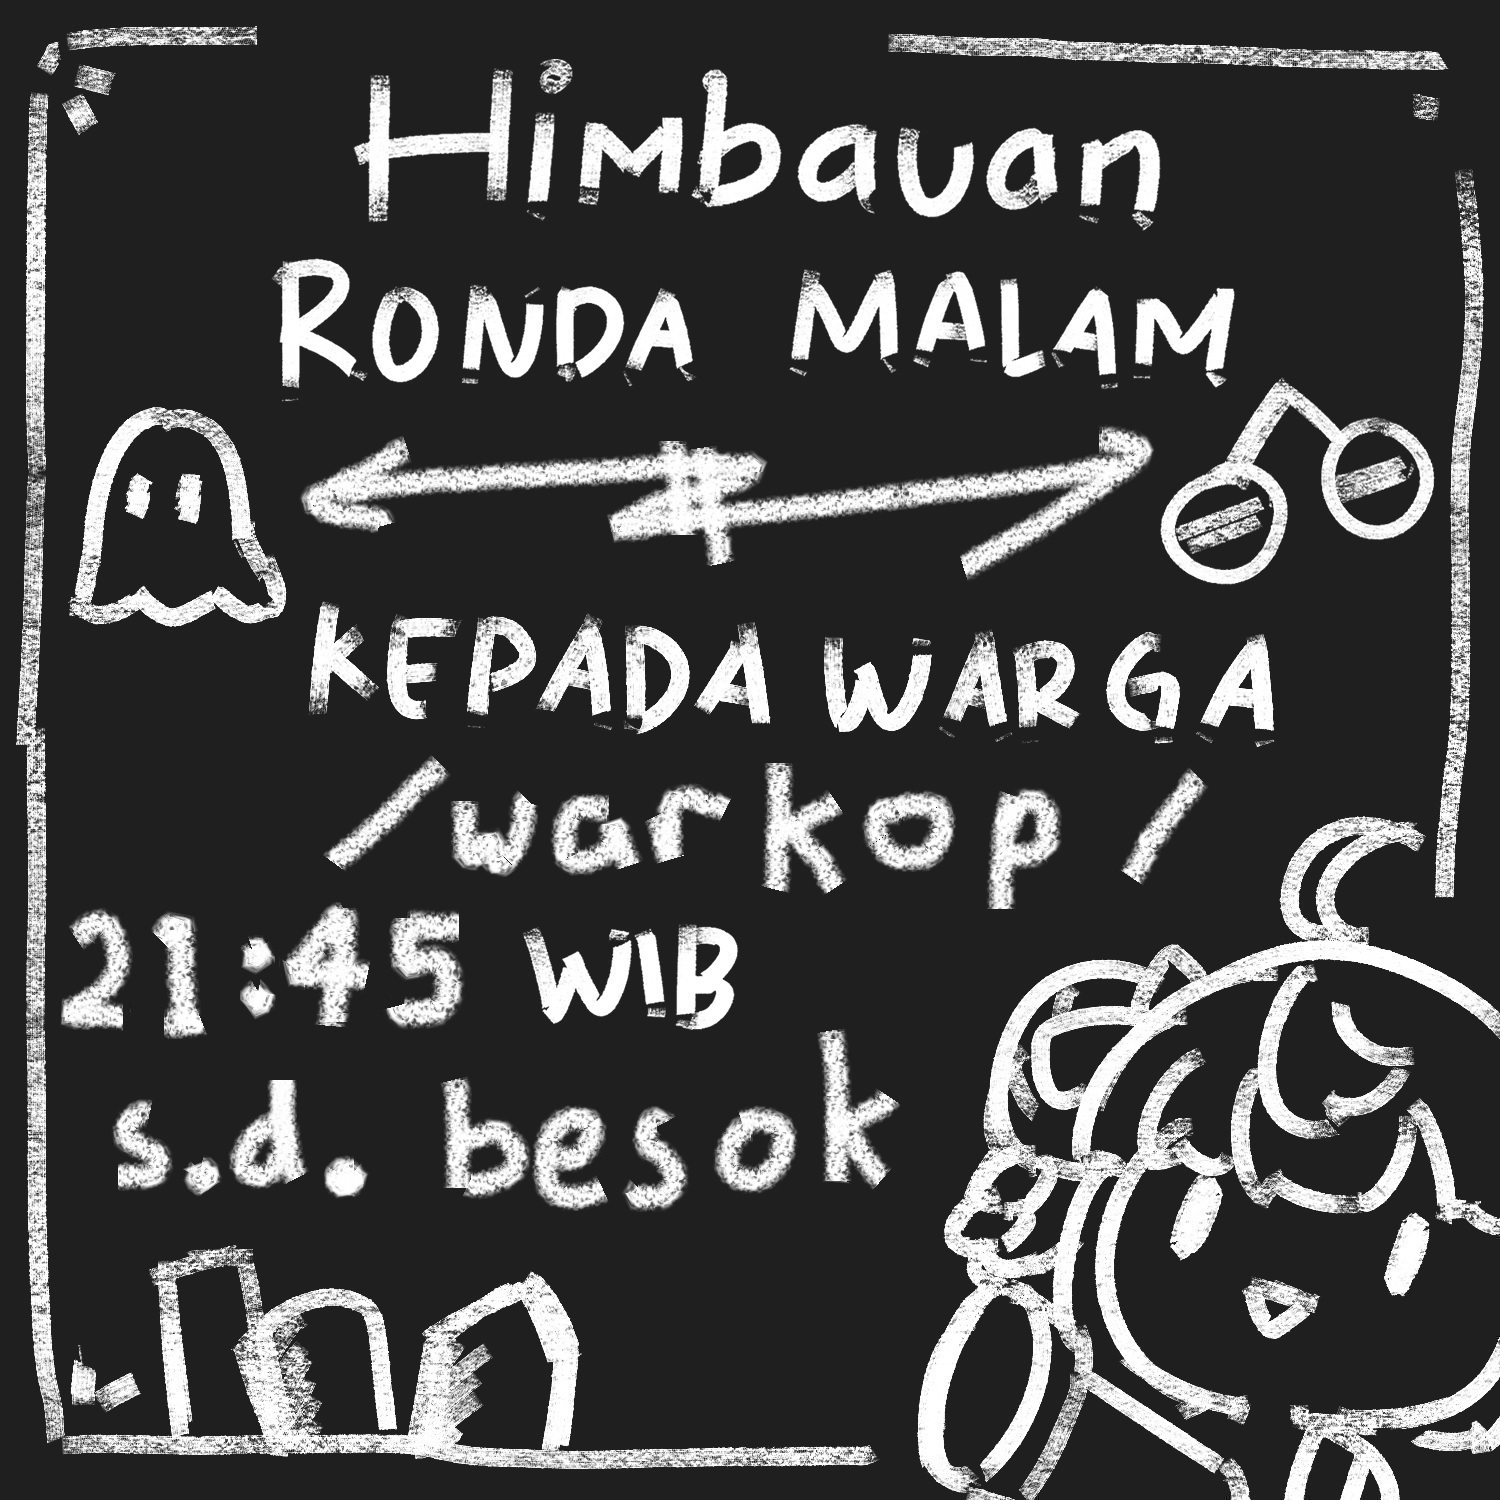 Himbauan
RONDA MALAM
KEPADA WARGA
/warkop/
21:45 WIB
s.d. besok